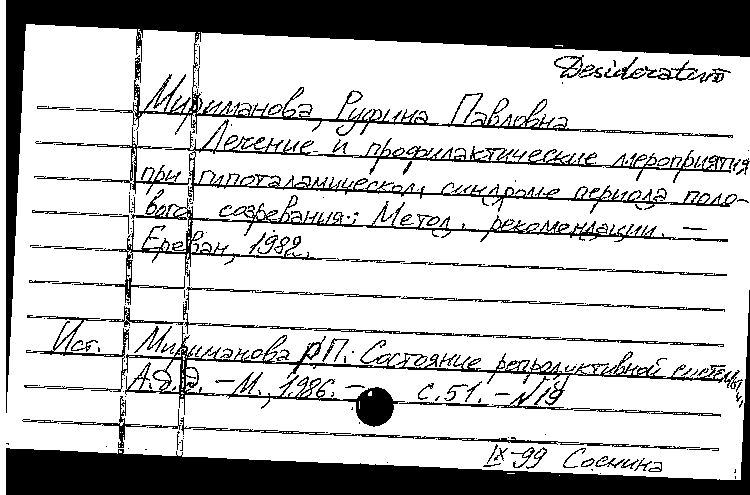 Desideratum
Мириманова, Руфина Павловна
Лечение и профилактические мероприятия
при гипоталамическом синдроме периода поло-
вого созревания: Метод. рекомендации. —
Ереван, 1982.
Ист. Мириманова РП.: Состояние репродуктивной системы
А.Д. — М., 1986. — с. 51. — №19
IX-99 Соснина